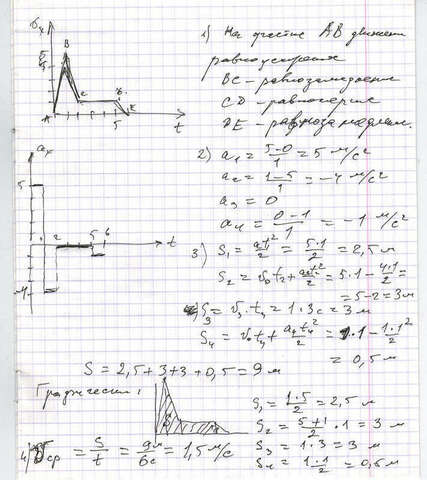 υx
5
B
A
C
D
E
5
t
1) На участке AB движен
равноускорен
BC - равнозамедлен
CD - равномерно
DE - равнозамедлен.
2) a₁ = (5-0)/1 = 5 м/с²
a₂ = (1-5)/1 = -4 м/с²
a₃ = 0
a₄ = (0-1)/1 = -1 м/с²
ax
5
1
2
5
6
t
-4
3) S₁ = at₁²/2 = (5·1)/2 = 2,5 м
S₂ = υ₀t₂ + a₂t₂²/2 = 5·1 - (4·1)/2 =
= 5-2 = 3 м
S₃ = υ₃·t₃ = 1·3 с = 3 м
S₄ = υ₀t₄ + a₄t₄²/2 = 1·1 - (1·1²)/2
= 0,5 м
S = 2,5 + 3 + 3 + 0,5 = 9 м
Графически:
S₁ = (1·5)/2 = 2,5 м
S₂ = (5+1)/2 · 1 = 3 м
S₃ = 1·3 = 3 м
S₄ = (1·1)/2 = 0,5 м
4) υср = S/t = 9м/6с = 1,5 м/с